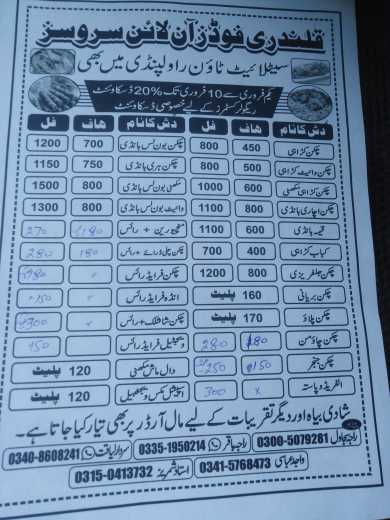 قلندری فوڈز آن لائن سروسز
سیٹلائیٹ ٹاؤن راولپنڈی میں بھی
یکم فروری سے 10 فروری تک %20 ڈسکاؤنٹ
ریگولر کسٹمرز کے لیے خصوصی ڈسکاؤنٹ
دش کا نام ہاف فل دش کا نام ہاف فل
چکن کڑاہی 450 800 چکن بون لس ہانڈی 700 1200
چکن وائیٹ کڑاہی 500 800 چکن ہری ہانڈی 750 1150
چکن کڑاہی مکھنی 600 1000 مکھنی بون لس ہانڈی 800 1500
چکن اچاری ہانڈی 800 1100 وائیٹ بون لس ہانڈی 800 1300
قیمہ ہانڈی 600 1100 + رائس 180 270
کباب کڑاہی 400 700 رائس 180 280
چکن جلفریزی 800 1200 چکن فرائیڈ رائس
چکن بریانی 160 پلیٹ انڈہ فرائیڈ رائس 150
چکن پلاؤ 170 پلیٹ چکن شاشلک + رائس 300
چکن چاؤمن 180 280 ویجیٹیبل فرائیڈ رائس 150
چکن جنجر 150 250 دال ماش مکھنی 120 پلیٹ
الفریڈو پاستہ x 300 اسپیشل مکس ویجیٹیبل 120 پلیٹ
شادی بیاہ اور دیگر تقریبات کے لیے مال آرڈر پر بھی تیار کیا جاتا ہے۔
0300-5079281 راجہ باقر 0335-1950214 سردار لیاقت 0340-8608241
واجد عباسی 0341-5768473 استاد شمریز 0315-0413732